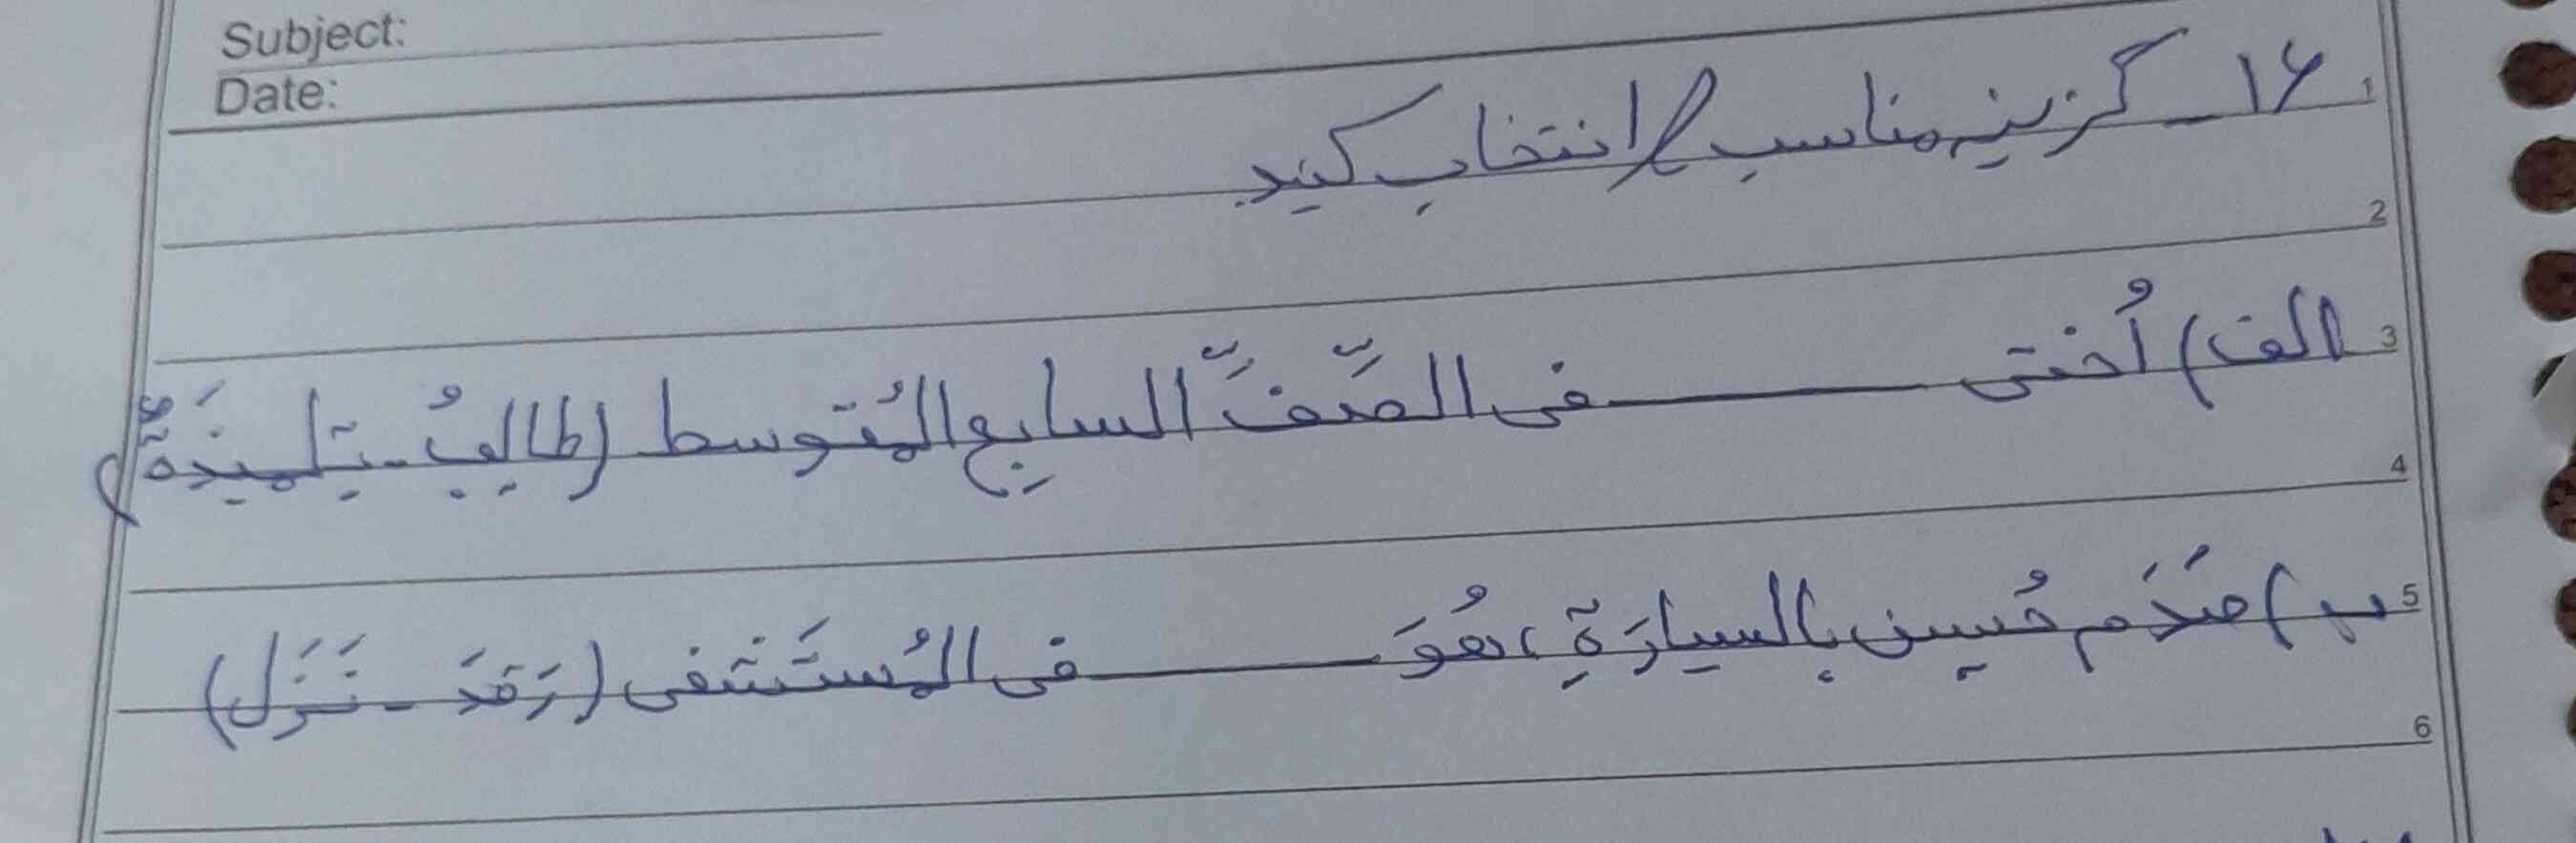 Subject:
Date:
1
۱۶ _ گزینه مناسب را انتخاب کنید.
2
3
الف) أُختی ______ فی الصَّفِّ السابِعِ المُتوسط (طالِبُ - تِلمیذَةٌ)
4
5
ب) صَدَم حُسِین بِالسیارَةِ، هُوَ ______ فی المُستَشفی (رَقَدَ - نَزَلَ)
6